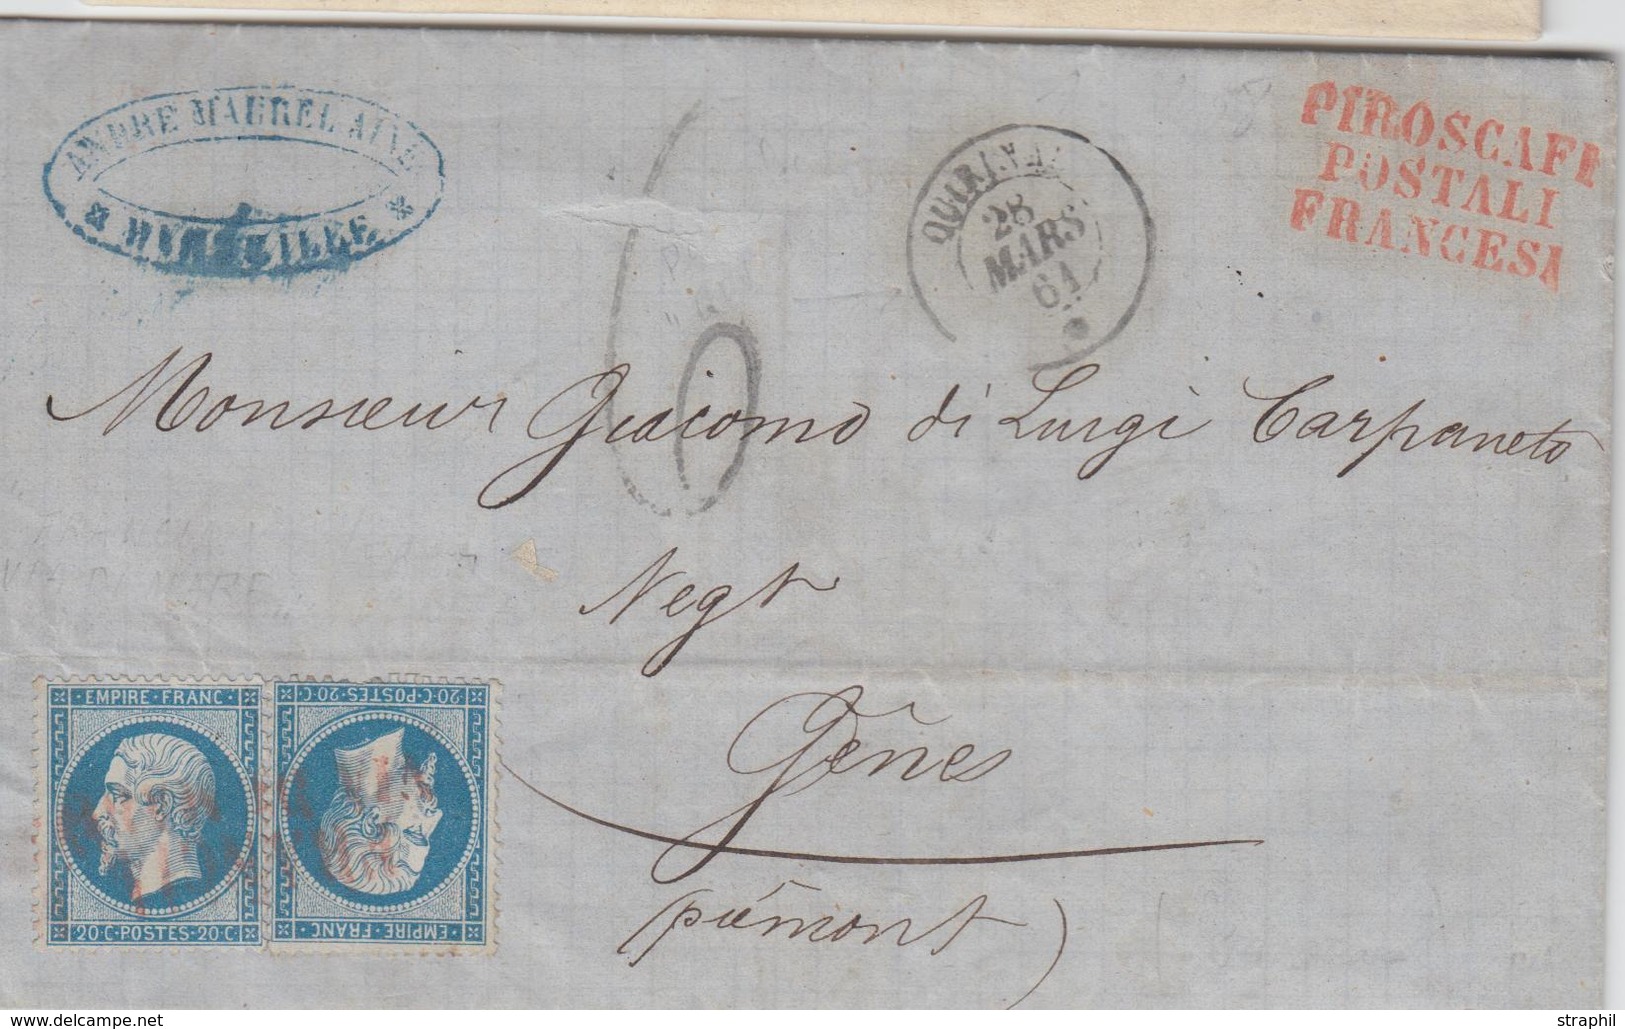 ANDRE MAUREL AINÉ
* MARSEILLE *
QUIRINAL
28
MARS
61
PIROSCAFI
POSTALI
FRANCESI
Monsieur Giacomo di Luigi Carpaneto
Negt
Gênes
(piémont)
EMPIRE·FRANC·
20·C·POSTES·20·C·
20·C·POSTES·20·C·
EMPIRE·FRANC·
www.delcampe.net
straphil